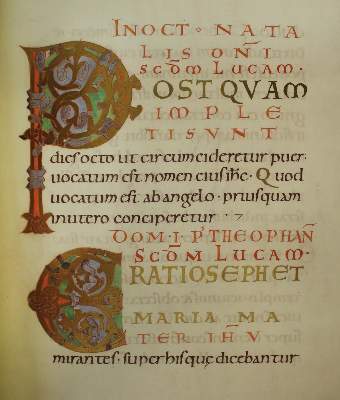 IN OCT · NATA
LIS DÑI
SCDM LUCAM ·
POSTQVAM
IMPLE
TI SUNT
dies octo ut circumcideretur puer
vocatum est nomen eius ihc · Quod
vocatum est ab angelo · priusquam
in utero conciperetur · 7
DOM · I · P̃ THEOPHAÑ
SCDM LUCAM ·
ERAT IOSEPH ET
MARIA MA
TER IHV
mirantes · super his quę dicebantur